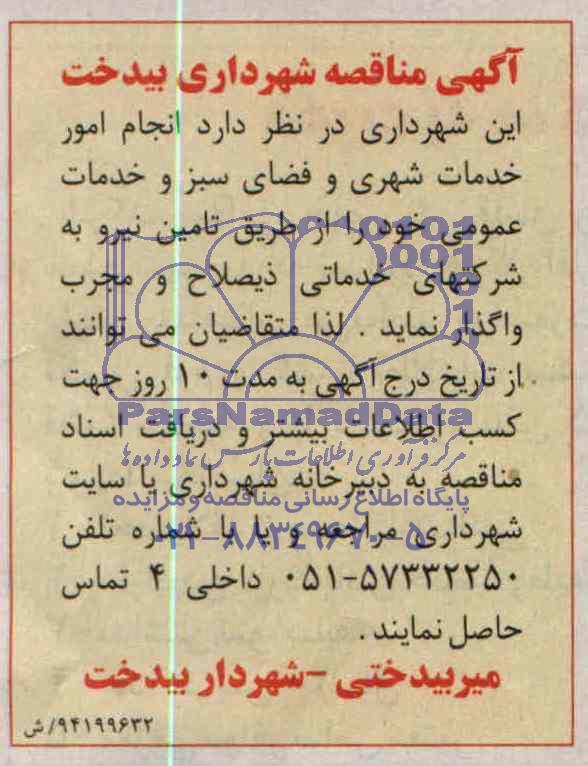 آگهی مناقصه شهرداری بیدخت
این شهرداری در نظر دارد انجام امور
خدمات شهری و فضای سبز و خدمات
عمومی خود را از طریق تامین نیرو به
شرکتهای خدماتی ذیصلاح و مجرب
واگذار نماید . لذا متقاضیان می توانند
از تاریخ درج آگهی به مدت ۱۰ روز جهت
ParsNamadData
کسب اطلاعات بیشتر و دریافت اسناد
مرکز فرآوری اطلاعات پارس نماد داده ها
مناقصه به دبیرخانه شهرداری یا سایت
پایگاه اطلاع رسانی مناقصه و مزایده
شهرداری مراجعه و یا با شماره تلفن
۰۲۱-۸۸۳۴۹۶۷۰-۵
۰۵۱-۵۷۳۳۲۲۵۰ داخلی ۴ تماس
حاصل نمایند .
میربیدختی -شهردار بیدخت
۹۴۱۹۹۶۳۲/ش